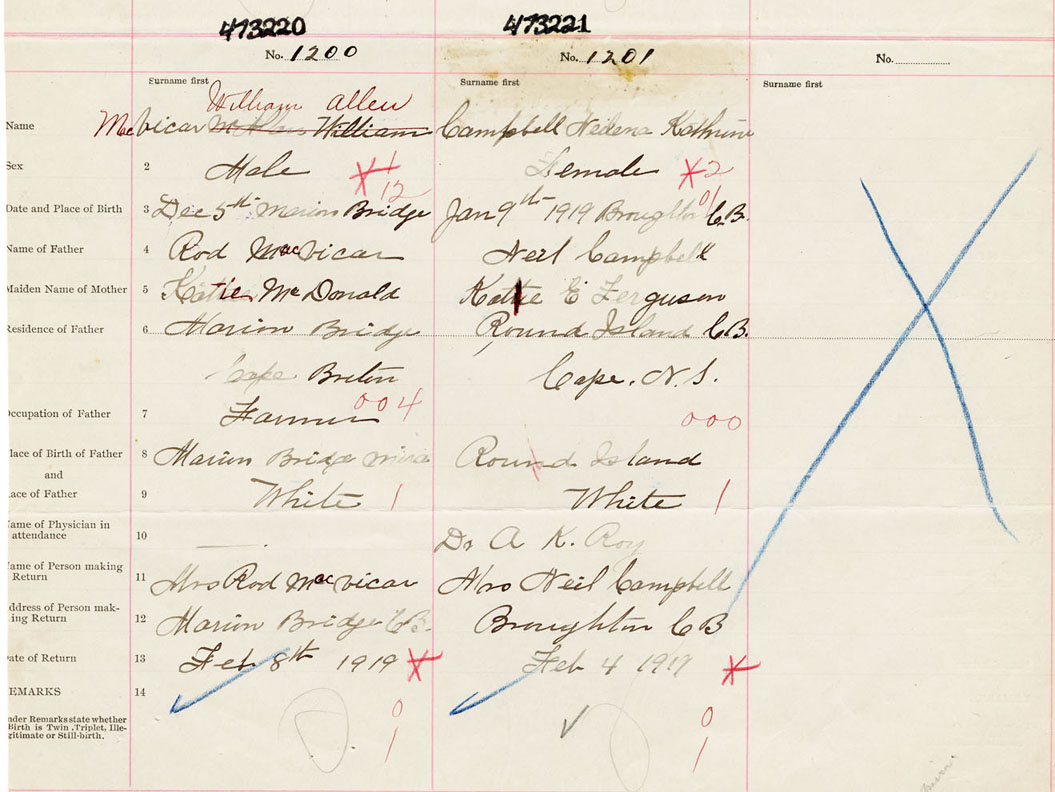 473220 473221
No. 1200 No. 1201 No.
Surname first Surname first Surname first
William Allen
Name MacVicar William Campbell Hedena Kathrine
Sex 2 Male 1 Female 2
12 01
Date and Place of Birth 3 Dec 5th Marion Bridge Jan 9th 1919 Broughton C.B.
Name of Father 4 Rod MacVicar Neil Campbell
Maiden Name of Mother 5 Katie McDonald Katie E Ferguson
Residence of Father 6 Marion Bridge Round Island C.B.
Cape Breton Cape. N.S.
Occupation of Father 7 Farmer 004 000
lace of Birth of Father 8 Marion Bridge Mira Round Island
and
ace of Father 9 White 1 White 1
ame of Physician in
attendance 10 Dr A K. Roy
ame of Person making
Return 11 Mrs Rod MacVicar Mrs Neil Campbell
ddress of Person mak-
ing Return 12 Marion Bridge C.B. Broughton C B
Date of Return 13 Feb 8th 1919 Feb 4 1919
EMARKS 14
nder Remarks state whether
Birth is Twin, Triplet, Ille-
gitimate or Still-birth.
0 0
1 1